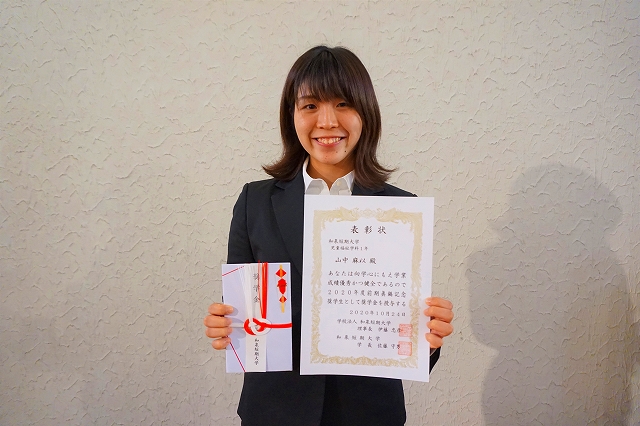 奨学金
和泉短期大学
表彰状
和泉短期大学
児童福祉学科1年
山中 麻以 殿
あなたは向学心にもえ学業
成績優秀かつ健全であるので
2020年度前期表彰記念
奨学生として奨学金を授与する
2020年10月24日
学校法人 和泉短期大学
理事長 伊藤 忠
和泉短期大学
学長 佐藤 守男